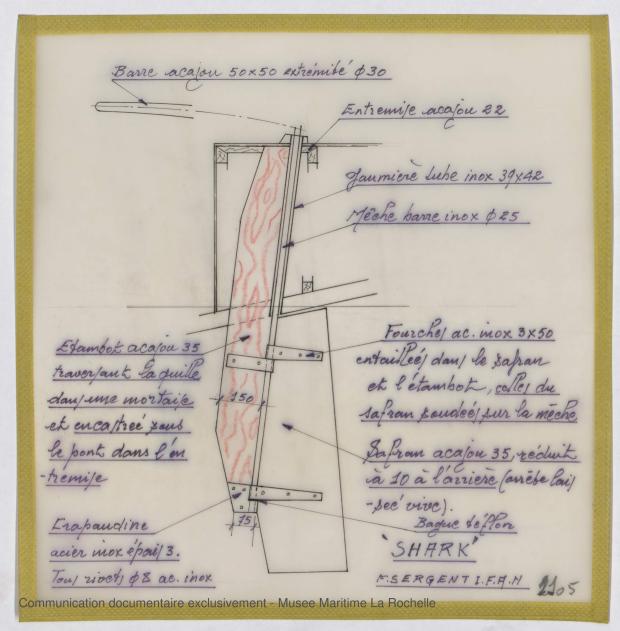 Barre acajou 50x50 extrémité φ30
Entremise acajou 22
Jaumière tube inox 39x42
Mêche barre inox φ25
Etambot acajou 35
traversant la quille
dans une mortaise
et encastreé sous
le pont dans l'en
-tremise
Fourches ac. inox 3x50
entailleés dans le safran
et l'étambot, celles du
safran soudeés sur la mêche
150
Safran acajou 35, réduit
à 10 à l'arrière (arrête lais
-seé vive).
Bague téflon
Crapaudine
acier inox épais 3.
Tous rivets φ8 ac. inox
75
'SHARK'
F. SERGENT I.F.A.N
2105
Communication documentaire exclusivement - Musee Maritime La Rochelle